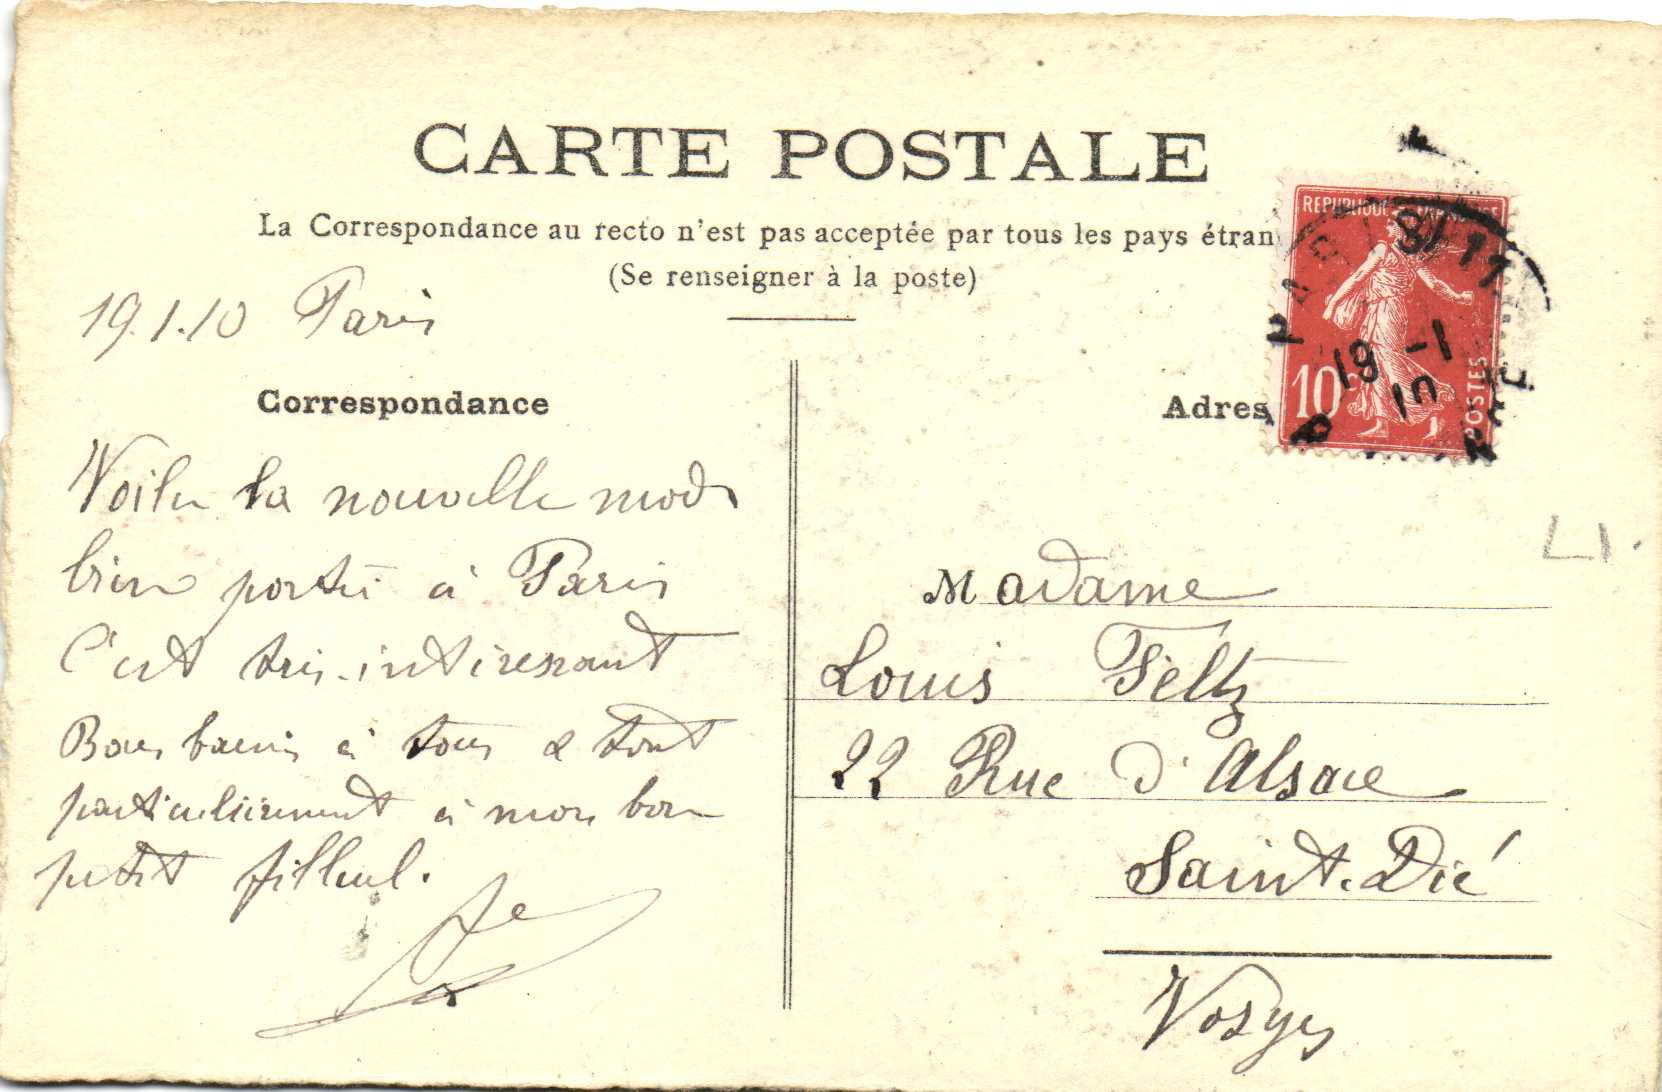 CARTE POSTALE
La Correspondance au recto n'est pas acceptée par tous les pays étran
(Se renseigner à la poste)
19.1.10 Paris
Correspondance
Adres
REPUBLIQUE FRANÇAISE
10c
POSTES
PARIS
19 -1
10
Voila la nouvelle mode
bien portée à Paris
C'est très-intéressant
Bons baisers à tous & tout
particulièrement à mon bon
petit filleul.
Madame
Louis Feltz
22 Rue d'Alsace
Saint.Dié
Vosges